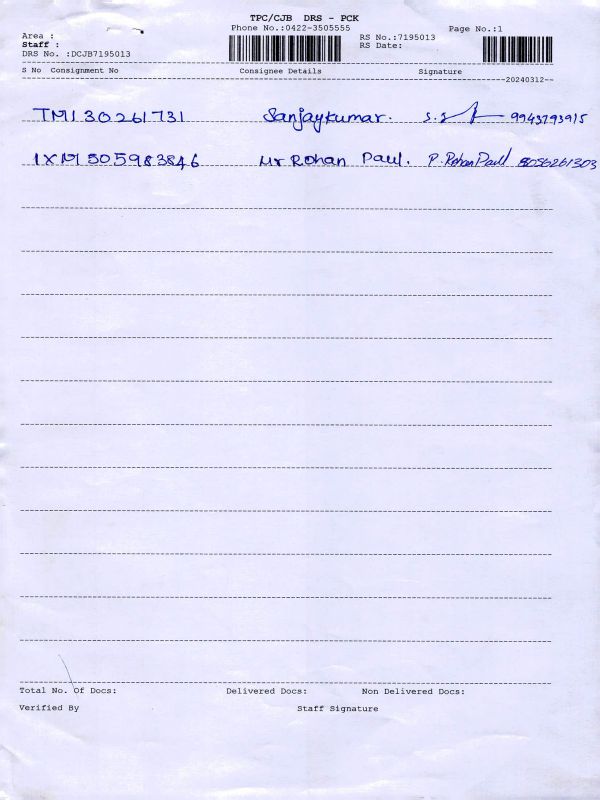 TPC/CJB DRS - PCK
Phone No.:0422-3505555
Page No.:1
Area :
RS No.:7195013
Staff :
RS Date:
DRS No. :DCJB7195013
S No Consignment No Consignee Details Signature
20240312
TM130261731 Sanjaykumar. 9943793915
1XM505983846 Mr Rohan Paul. P. Rohan Paul 8056261303
Total No. Of Docs: Delivered Docs: Non Delivered Docs:
Verified By Staff Signature